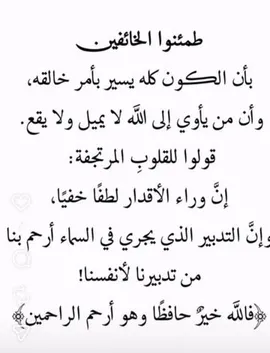 طمئنوا الخائفين
بأن الكون كله يسير بأمر خالقه،
وأن من يأوي إلى اللَّه لا يميل ولا يقع.
قولوا للقلوبِ المرتجفة:
إنَّ وراء الأقدار لطفًا خفيًا،
وإنَّ التدبير الذي يجري في السماء أرحم بنا
من تدبيرنا لأنفسنا!
﴿فاللَّه خيرٌ حافظًا وهو أرحم الراحمين﴾